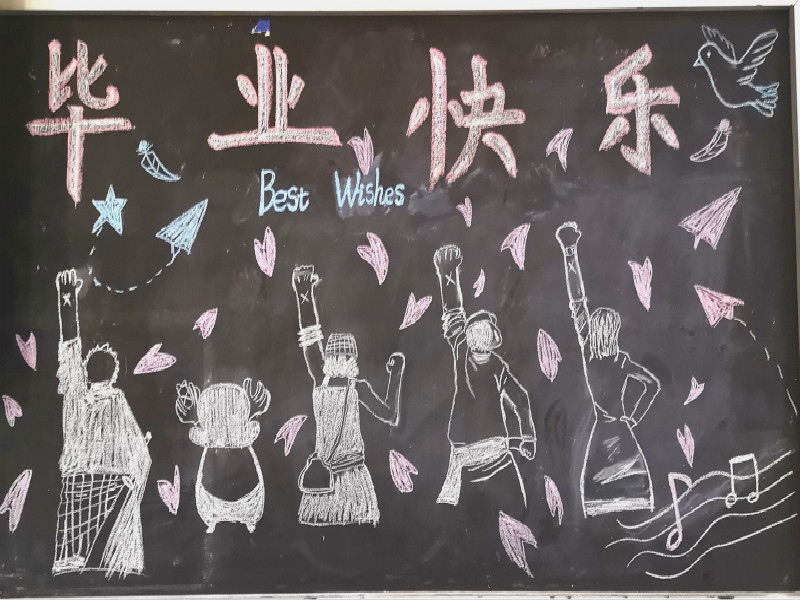 毕业快乐
Best Wishes